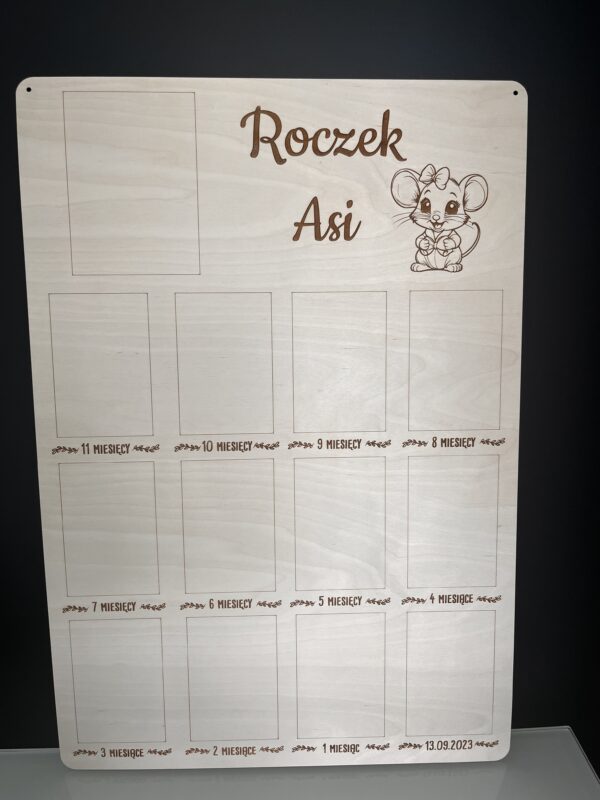 Roczek
Asi
11 MIESIĘCY
10 MIESIĘCY
9 MIESIĘCY
8 MIESIĘCY
7 MIESIĘCY
6 MIESIĘCY
5 MIESIĘCY
4 MIESIĄCE
3 MIESIĄCE
2 MIESIĄCE
1 MIESIĄC
13.09.2023